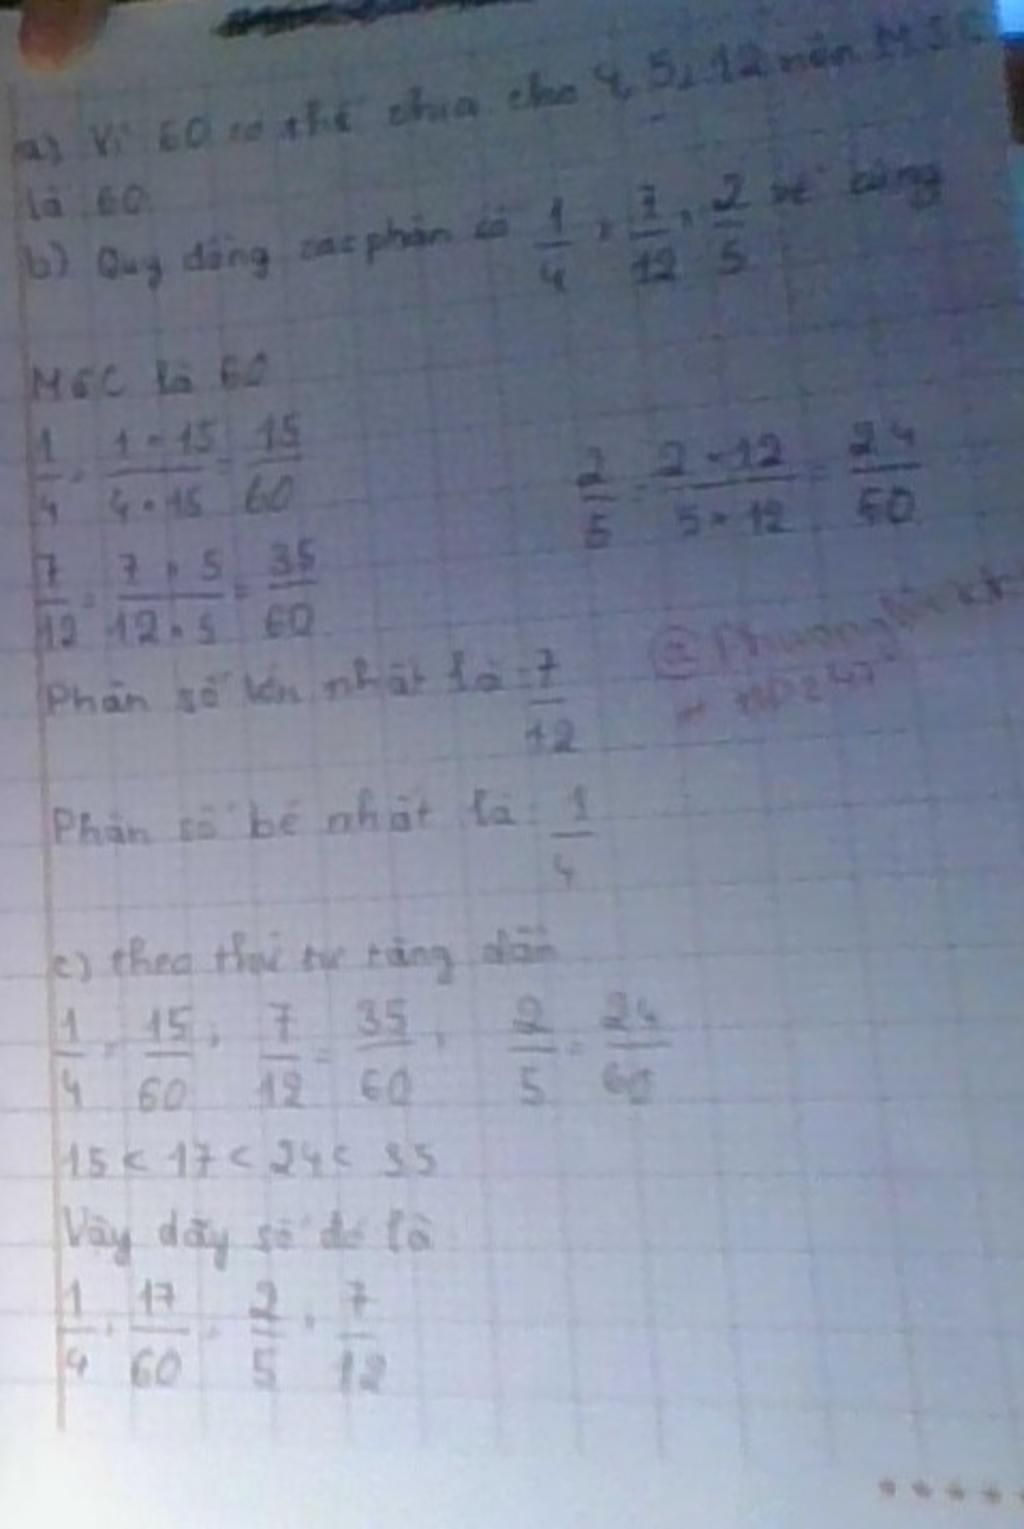 a) Vì 60 có thể chia cho 4, 5, 12 nên MSC
là 60
b) Quy đồng các phân số 1/4, 7/12, 2/5 về cùng
MSC là 60
1/4 = 1 × 15/4 × 15 = 15/60 2/5 = 2 × 12/5 × 12 = 24/60
7/12 = 7 × 5/12 × 5 = 35/60
Phân số lớn nhất là: 7/12
Phân số bé nhất là: 1/4
c) theo thứ tự tăng dần
1/4 = 15/60, 7/12 = 35/60, 2/5 = 24/60
15 < 17 < 24 < 35
Vậy dãy số đó là
1/4, 17/60, 2/5, 7/12